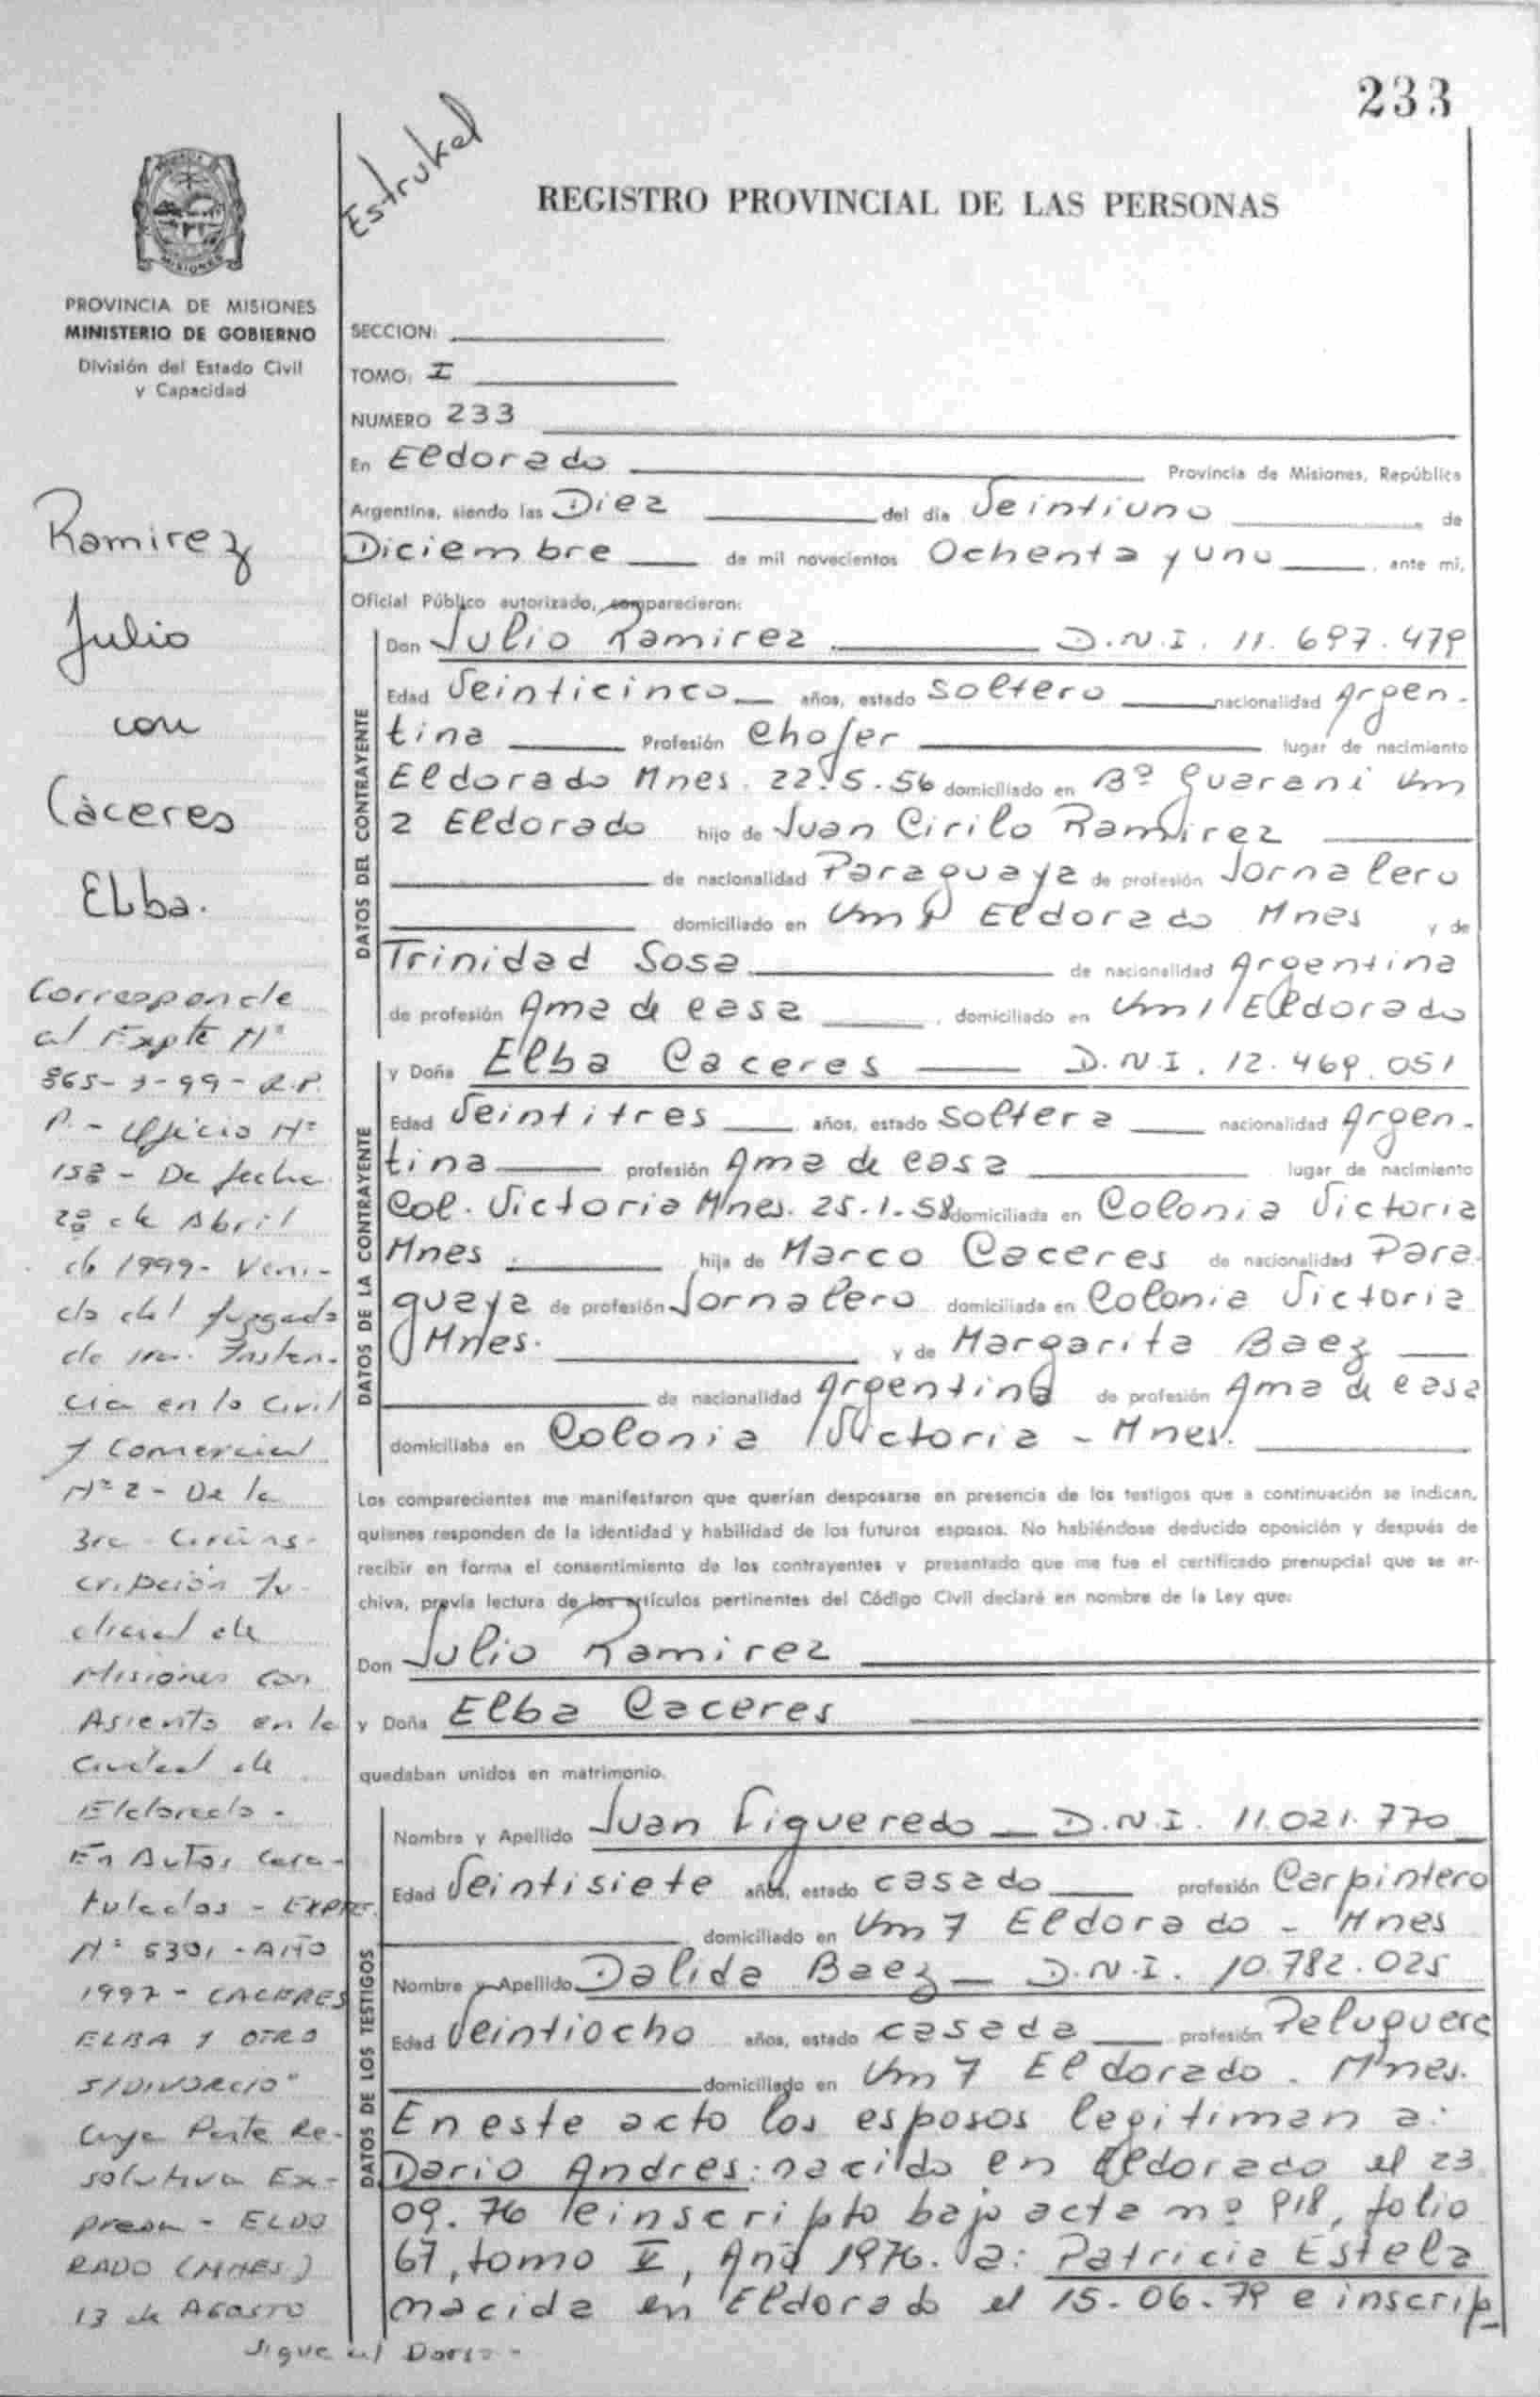 233
Estrukel
REGISTRO PROVINCIAL DE LAS PERSONAS
MISIONES
PROVINCIA DE MISIONES
MINISTERIO DE GOBIERNO
División del Estado Civil
y Capacidad
SECCION:
TOMO: I
NUMERO 233
En Eldorado Provincia de Misiones, República
Argentina, siendo las Diez del día Veintiuno de
Diciembre de mil novecientos Ochenta y uno, ante mi,
Oficial Público autorizado, comparecieron:
DATOS DEL CONTRAYENTE
Don Julio Ramirez D.N.I. 11.697.479
Edad Veinticinco años, estado soltero nacionalidad Argen-
tina Profesión Chofer lugar de nacimiento
Eldorado Mnes. 22.5.56 domiciliado en Bº Guarani Km
2 Eldorado hijo de Juan Cirilo Ramirez
de nacionalidad Paraguaya de profesión Jornalero
domiciliado en Km 1 Eldorado Mnes y de
Trinidad Sosa de nacionalidad Argentina
de profesión Ama de casa, domiciliado en Km 1 Eldorado
DATOS DE LA CONTRAYENTE
y Doña Elba Caceres D.N.I. 12.469.051
Edad Veintitres años, estado soltera nacionalidad Argen-
tina profesión Ama de casa lugar de nacimiento
Col. Victoria Mnes. 25-1-58 domiciliada en Colonia Victoria
Mnes. hija de Marco Caceres de nacionalidad Para
guaya de profesión Jornalero domiciliada en Colonia Victoria
Mnes. y de Margarita Baez
de nacionalidad Argentina de profesión Ama de casa
domiciliaba en Colonia Victoria - Mnes.
Los comparecientes me manifestaron que querían desposarse en presencia de los testigos que a continuación se indican,
quienes responden de la identidad y habilidad de los futuros esposos. No habiéndose deducido oposición y después de
recibir en forma el consentimiento de los contrayentes y presentado que me fue el certificado prenupcial que se ar-
chiva, previa lectura de los artículos pertinentes del Código Civil declaré en nombre de la Ley que:
Don Julio Ramirez
y Doña Elba Caceres
quedaban unidos en matrimonio.
DATOS DE LOS TESTIGOS
Nombre y Apellido Juan Figueredo D.N.I. 11.021.770
Edad Veintisiete años, estado casado profesión Carpintero
domiciliado en Km 7 Eldorado - Mnes
Nombre y Apellido Dalida Baez D.N.I. 10.782.025
Edad Veintiocho años, estado casada profesión Peluquera
domiciliado en Km 7 Eldorado. Mnes.
En este acto los esposos legitiman a:
Dario Andres: nacido en Eldorado el 23
09.76 e inscripto bajo acta nº 918, folio
67, tomo V, Año 1976. a: Patricia Estela
nacida en Eldorado el 15-06-79 e inscrip
Ramirez
Julio
con
Càceres
Elba.
Corresponde
al Expte Nº
865-J-99-R.P.
P.- Oficio Nº
- De fecha
de Abril
de 1999- Veni-
do del Juzgado
de 1ra. Instan-
cia en lo Civil
y Comercial
Nº 2 - De la
3ra - Circuns-
cripción Ju-
dicial de
Misiones con
Asiento en la
Ciudad de
Eldorado -
En Autos Cara-
tulados - EXPTE.
Nº 5301 - AÑO
1997 - CACERES
ELBA Y OTRO
S/DIVORCIO"
Cuya Parte Re-
solutiva Ex-
presa - ELDO
RADO (MNES)
13 de AGOSTO
Sigue al Dorso -